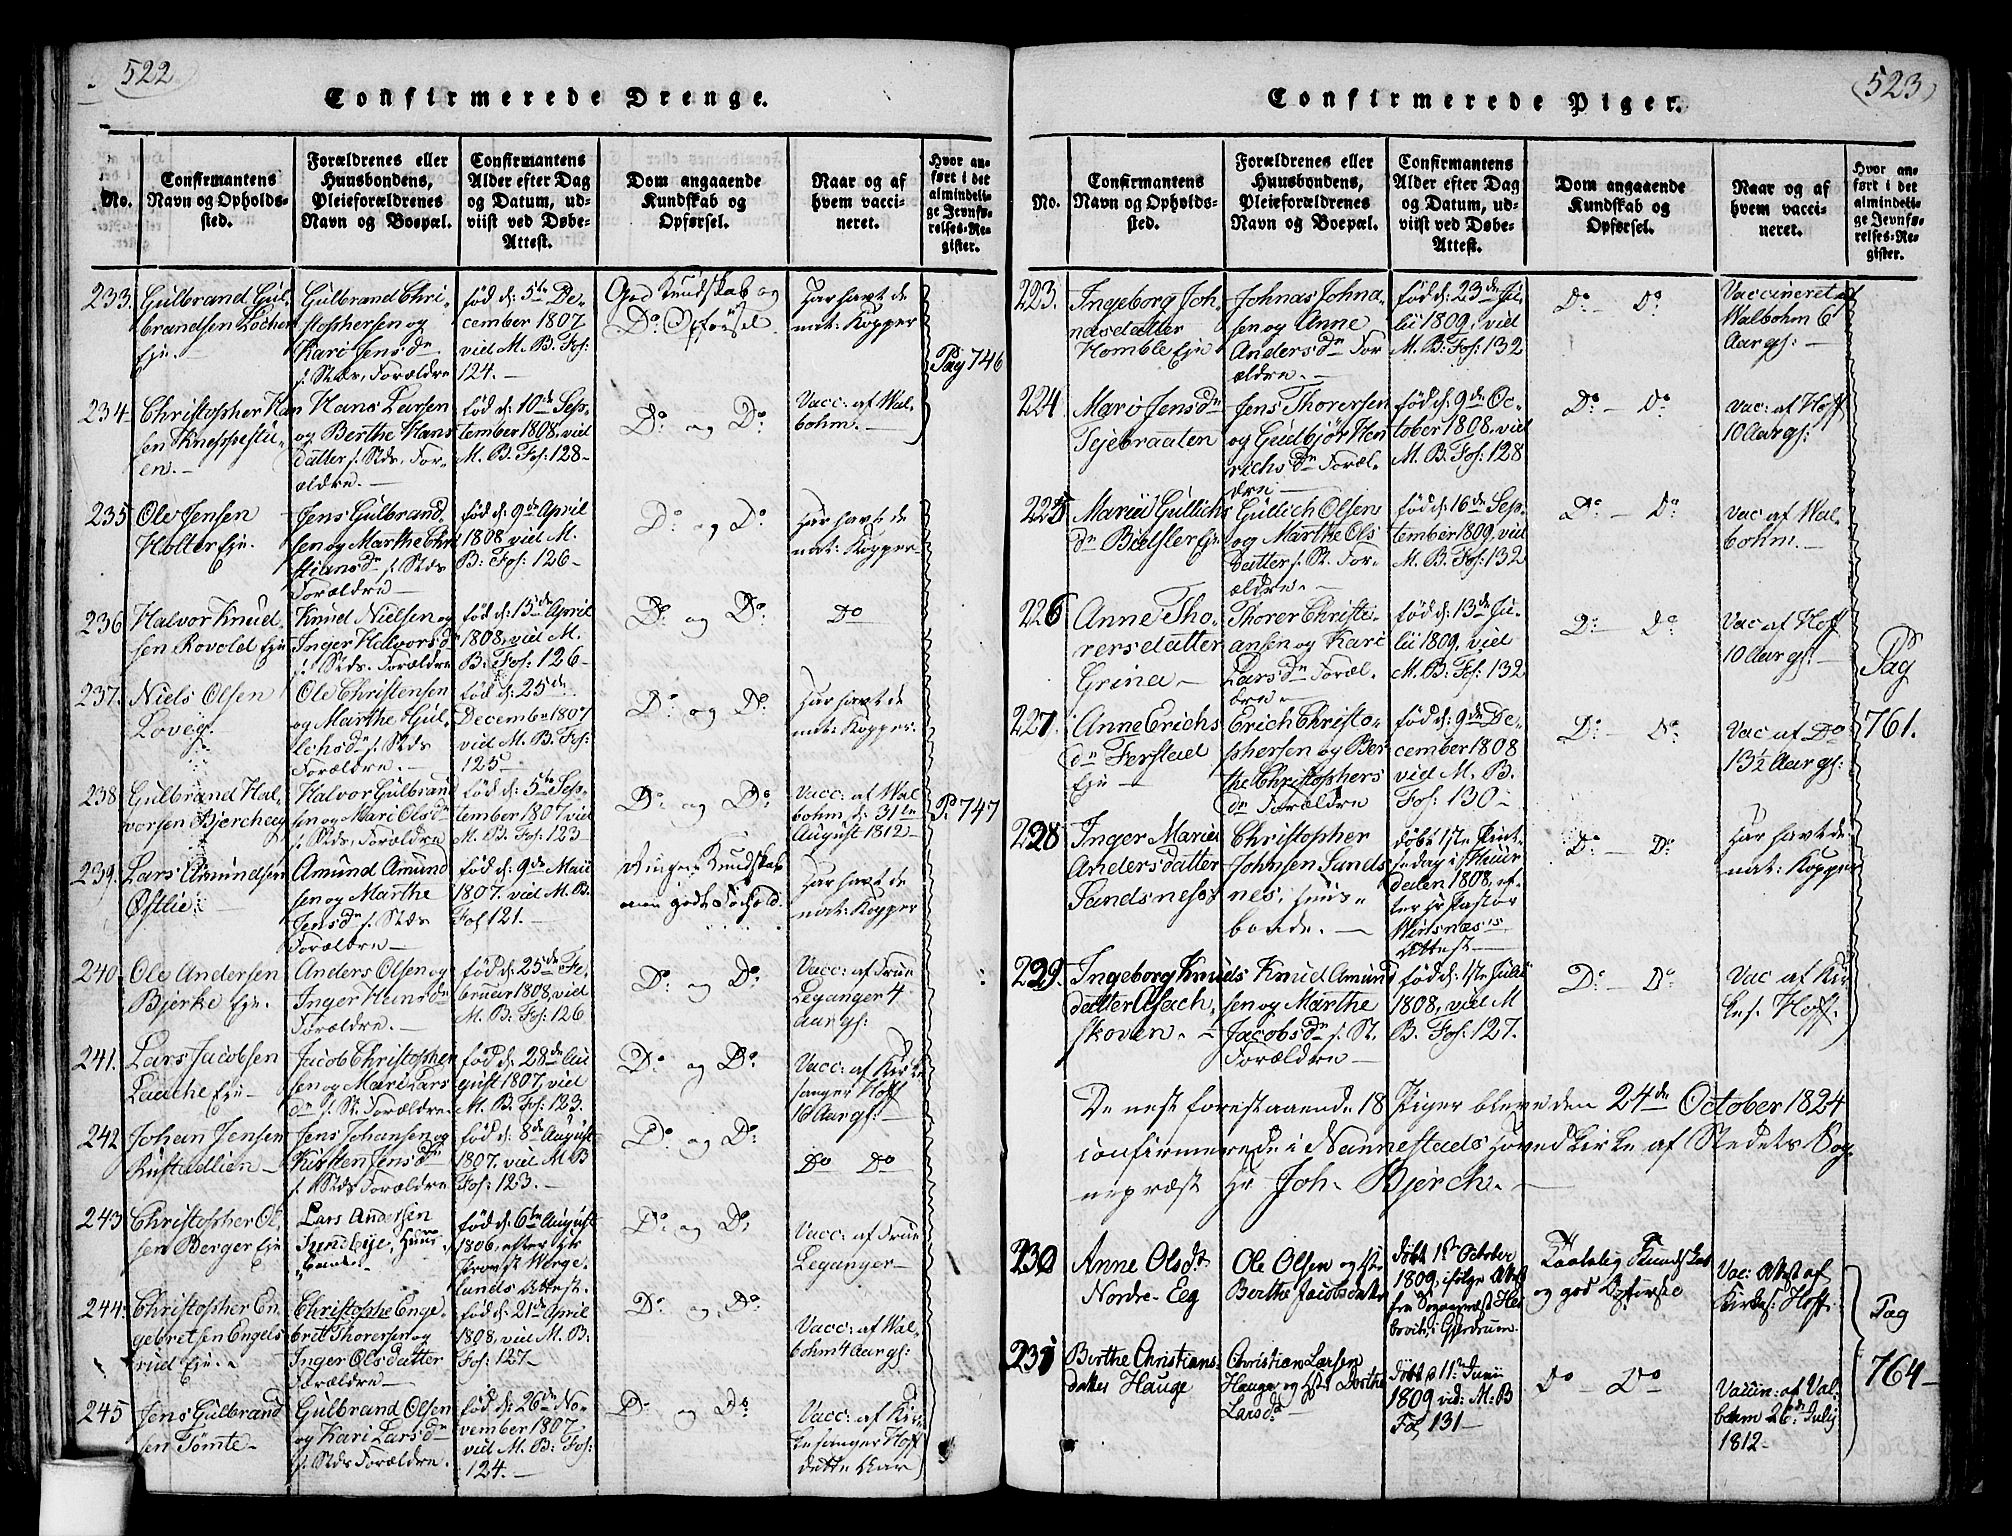 522
Confirmerede Drenge.
No.
Confirmantens
Navn og Opholds-
sted.
Forældrenes eller
Huusbondens,
Pleieforældrenes
Navn og Boepæl.
Confirmantens
Alder efter Dag
og Datum, ud-
viist ved Døbe-
Attest.
Dom angaaende
Kundskab og
Opførsel.
Naar og af
hvem vacci-
neret.
Hvor an-
ført i det
almindeli-
ge Jevnfø-
relses-Re-
gister.
233.
Gulbrand Gul-
brandsen Locher
Eje.
Gulbrand Chri-
stophersen og
Kari Jensdr
s. Stds, Forældre
fød d: 5te De-
cember 1807
vid M. B. Fol:
124.
God Kundskab og
Do Opførsel.
Har havt de
nat: Kopper
Pag 746
234
Christopher Han
sen Kneppestu-
en.
Hans Larsen
og Berthe Hans
datter s. Stds, For-
ældre.
fød d: 10de Sep-
tember 1808, vid
M. B. Fol: 128
Do og Do
Vacc: af Wal-
bohm.
235
Ole Jensen
Holter Eje.
Jens Gulbrand-
sen og Marthe Chri
stiansdr s. Stds
Forældre
fød d: 9de April
1808 vid M.
B: Fol: 126
Do og Do
Har havt de
nat: Kopper
236
Halvor Knud-
sen Rovold Eje
Knud Nielsen og
Inger Halvorsdr
s. Stds. Forældre
fød d: 15de April
1808, vid M.
B: Fol: 126
Do og Do
Do
237.
Niels Olsen
Løveg.
Ole Christensen
og Marthe Gul-
lichsdr s. Stds
Forældre.
fød d: 25de
December 1807
vid M. B. Fol:
125
Do og Do
Har havt de
nat: Kopper.
238
Gulbrand Hal-
vorsen Bjerche
Halvor Gulbrand
sen og Mari Olsdr
s. Stds, Forældre
fød d: 5te Sep-
tember 1807 vid
M. B. Fol: 123
Do og Do
Vacc: af Wal
bohm d: 31te
August 1812
P. 747
239.
Lars Amundsen
Østlie
Amund Amund
sen og Marthe
Jensdr s. Stds
Forældre
fød d: 9de Maii
1807. vid M. B.
Fol 121.
Ringe Kundskab
men godt Forhold.
Har havt de
nat: Kopper
240
Ole Andersen
Bjerke Eje.
Anders Olsen og
Inger Hansdr
Forældre.
fød d: 25de Fe-
bruar 1808, vid
M. B: Fol: 126
Do og Do
Vacc: af Frue
Leganger 4
Aar gl:
241.
Lars Jacobsen
Laache Eje
Jacob Christopher
sen og Mari Lars
dr s. St. Forældre
fød d: 28de Au
gust 1807, vid
M. B. Fol: 123.
Do og Do
Vacc: af Kirke
sanger Hoff
10 Aar gl:
242
Johan Jensen
Rustadlien
Jens Johansen og
Kirsten Jensdr
s. Stds Forældre
fød d: 8de August
1807. vid M. B
Fol: 123.
Do og Do
Do Do
243
Christopher Ol-
sen Berger Eje
Lars Andersen
Sundbye, Huus
bonde.
fød d: 6te August
1806, efter Hr
Provst Werge-
lands Attest.
Do og Do
Vacc: af Frue
Leganger
244
Christopher En
gebretsen Engels
rud Eje.
Christophe Enge-
bret Thorersen og
Inger Olsdatter
Forældre
fød d: 21de April
1808, vid M. B:
Fol: 127
Do og Do
Vacc: af Wal-
bohm 4 Aar gl:
245
Jens Gulbrand
sen Tømte
Gulbrand Olsen
og Kari Larsdr
s. Stds Forældre.
fød d: 26de No-
vember 1807
vid M. B. Fol:
124.
Do og Do
Vacc: af Kir-
kesanger Hoff
dette Aar
523
Confirmerede Piger.
No.
Confirmantens
Navn og Opholds-
sted.
Forældrenes eller
Huusbondens,
Pleieforældrenes
Navn og Boepæl.
Confirmantens
Alder efter Dag
og Datum, ud-
viist ved Døbe-
Attest.
Dom angaaende
Kundskab og
Opførsel.
Naar og af
hvem vacci-
neret.
Hvor an-
ført i det
almindeli-
ge Jevnfø-
relses-Re-
gister.
223.
Ingeborg Joh-
nasdatter
Homble Eje
Johnas Johna-
sen og Anne
Andersdr For
ældre.
fød d: 23de Ju-
lii 1809, vid
M. B: Fol: 132
Do - Do
Vaccineret af
Walbohm 6
Aar gl:
224
Mari Jensdr
Tejebraaten
Jens Thorersen
og Gudbjør Hen
richsdr Foræl-
dre
fød d: 9de Oc-
tober 1808, vid
M. B. Fol: 128
Do - Do
vac: af Hoff
10 Aar gl:
225
Marie Gullichs
dr Bielsler Eje
Gullich Olsen
og Marthe Ols
datter s. St. For-
ældre.
fød d: 16de Sep-
tember 1809, vid
M. B. Fol: 132
Do - Do
vac af Wal-
bohm.
226
Anne Tho-
rersdatter
Grina
Thorer Christi-
ansen og Kari
Larsdr Foræl-
dre
fød d: 13de Ju-
lii 1809, vid
M. B. Fol: 132
Do - Do
Vac af Hoff
10 Aar gl:
Pag
761.
227
Anne Erichs
dr Ferstad
Eje
Erich Christo-
phersen og Ber
the Christophers
dr Forældre
fød d: 9de De-
cember 1808
vid M. B.
Fol: 130
Do - Do
Vac af Do
13½ Aar gl:
228
Inger Marie
Andersdatter
Sandsness
Christopher
Johnsen Sands
nes, Huus-
bonde.
døbt 1ste Pint-
sedag i Huur
dalen 1808, ef-
ter Hr Pastor
Attest
Do - Do
Har havt de
nat: Kopper
229.
Ingeborg Knuds
datter Asach-
skoven.
Knud Amund
sen og Marthe
Jacobsdr s. St.
Forældre
fød d: 1ste Julii
1808, vid M
B. Fol: 127.
Do - Do
Vac af Kir
kes. Hoff.
De nest forestaaende 18 Piger bleve den 24de October 1824
confirmerede i Nannestads Hovedkirke af Stedets Sog-
nepræst Hr Joh. Bjerch.
230
Anne Olsdr
Nordre Eeg
Ole Olsen og
Berthe Jacobsdatter
Døbt 1ste October
1809, ifølge Attest
fra Sognepræst Her
i Gjerdrum.
Taalelig Kundskab
og god Opførsel
Vac: Attest af
Kirkes: Hoff
Pag
764
231
Berthe Christians-
datter Hauge
Christian Larsen
Hauge og Dorthe
Larsdr
Døbt 11te Junii
1809 vid: M: B
Fol 131
Do - Do
Vaccin: af Val-
bohm 26de July
1812